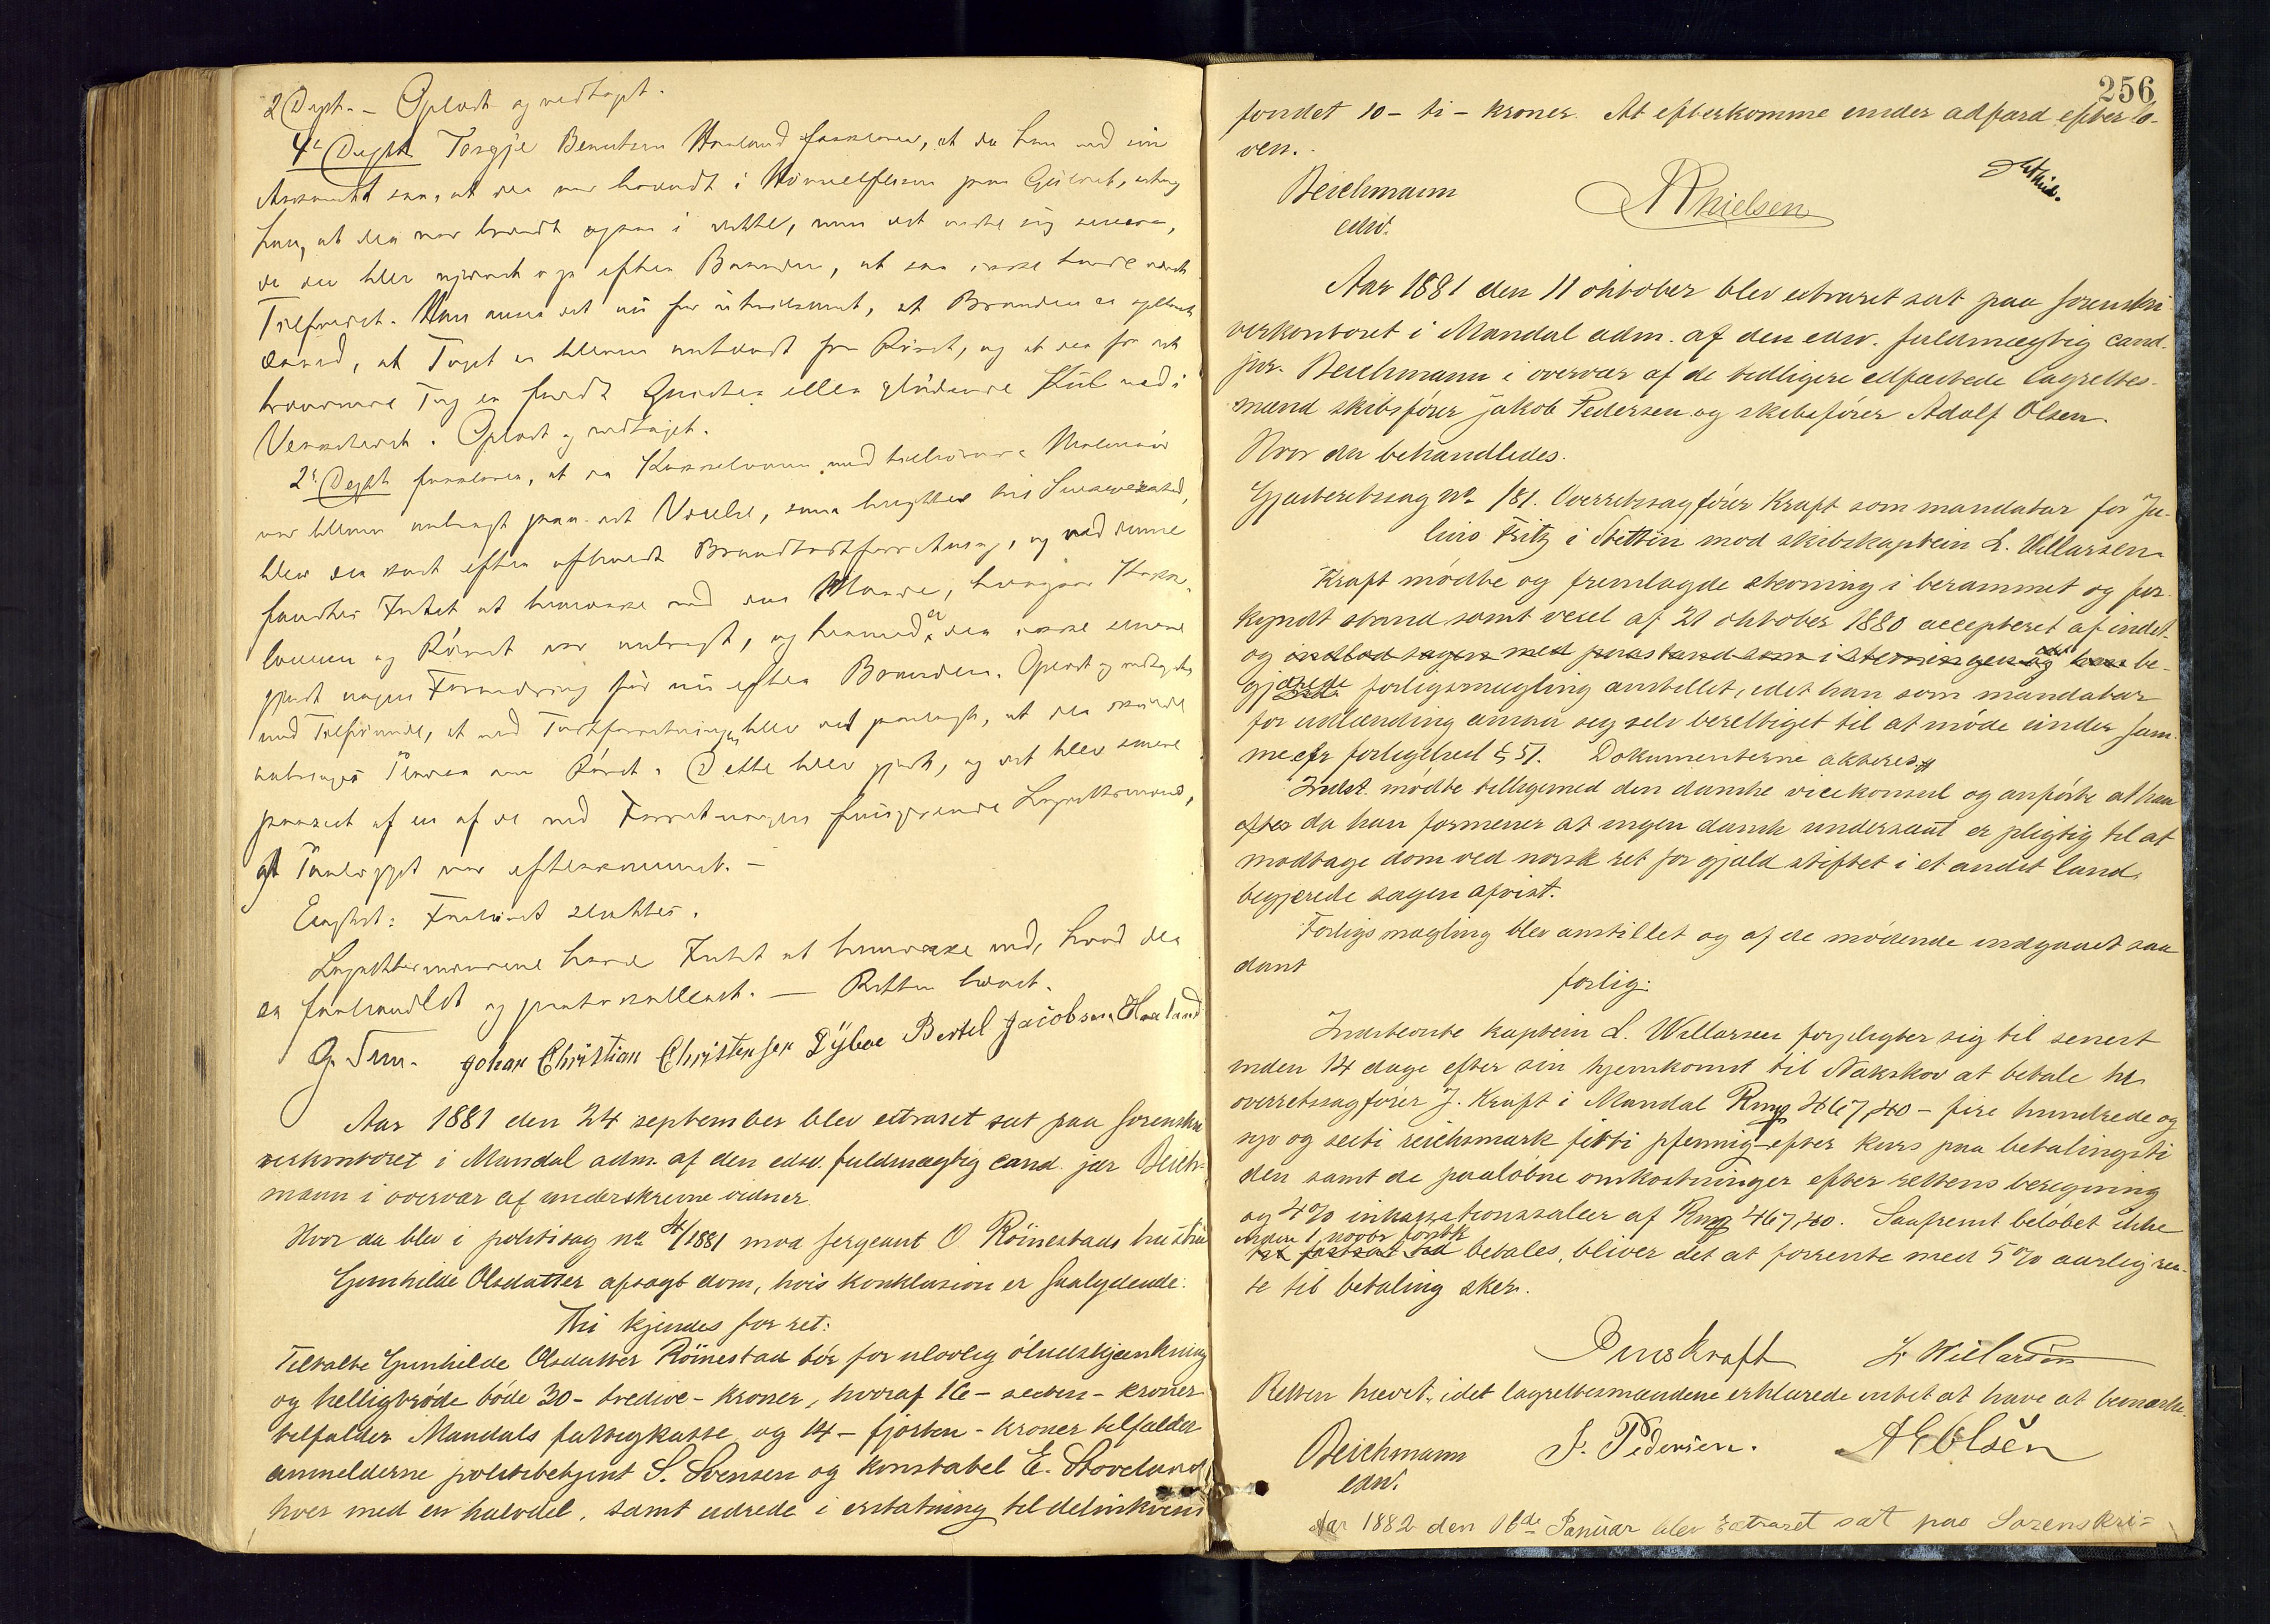 2 Dept. – Oplæst og vedtaget.
4de Dept. Torgje Berntsen Haaland forklarer, at da han ved sin
Ankomst saa, at der var brændt i
han, at der var brændt ogsaa i dette, men det viste sig senere,
da der blev efter Branden, at saa ikke havde været
Tilfældet. Han anser det nu for utvivlsomt, at Branden er opstaaet
derved, at Taget er blevet antændt fra Røret, og at der fra det
brændende Tag er faldt Gnister eller glødende Kul ned i
Værkstedet. Oplæst og vedtaget.
2de Dept. forklarer, at da med tilhørende
var blevet anbragt paa det Værelse, som benyttes til Snedkerværksted,
blev der kort efter afholdt Branttaxtforretning, og ved denne
fandtes Intet at bemærke ved den Maade, hvorpaa Kakkel-
ovnen og Røret var anbragt, og hermed er der ikke senere
gjort nogen Forandring før nu efter Branden. Oplæst og vedtaget
med Tilføiende, at ved Taxtforretningen blev det paalagt, at der skulde
anbringes om Røret. Dette blev gjort, og det blev senere
paaset af en af de ved Forretningen fungerende Lagrettesmænd,
at Paalægget var efterkommet. –
Forhøret sluttes.
Lagrettesmændene havde Intet at bemærke ved, hvad der
er forhandlet og protokolleret. – Retten hævet.
Johan Christian Christensen Dyboe Bertel Jacobsen Haaland
Aar 1881 den 24 september blev extraret sat paa sorenskri
verkontoret i Mandal adm. af den edsv. fuldmægtig cand. jur Beich-
mann i overvær af underskrevne vidner
Hvor da blev i politisag no 4/1881 mod sergeant O Röinestads hustru
Gunhilde Olsdatter afsagt dom, hvis konklusion er saalydende:
Thi kjendes for ret:
Tiltalte Gunhilde Olsdatter Röinestad bör for ulovlig öludskjænkning
og helligbröde böde 30 - tredive - kroner, hvoraf 16 - sexten - kroner
tilfalder Mandals fattigkasse og 14 - fjorten - kroner tilfalder
anmelderne politibetjent S. Svensen og konstabel E. Stoveland
hver med en halvdel, samt udrede i erstatning til delinkvent
256
fondet 10 - ti - kroner. At efterkomme under adfærd efter lo-
ven.
Beichmann
edsv.
N Nielsen
Aar 1881 den 11 oktober blev extraret sat paa sorenskri
verkontoret i Mandal adm. af den edsv. fuldmægtig cand.
jur. Beichmann i overvær af de tidligere edfæstede lagrettes-
mænd skibsfører Jakob Pedersen og skibsfører Adolf Olsen.
Hvor da behandledes.
Gjæsteretssag no /81. Overretssagfører Kraft som mandatar for Ju-
lius Fritz i Stettin mod skibskaptein L. Willarsen
Kraft mödte og fremlagde stevning i berammet og for-
kyndt stand samt vexel af 21 oktober 1880 accepteret af indst.
og indlod sagen med paastand som i stevningen og be-
gjærede forligsmægling anstillet, idet han som mandatar
for udlænding ansaa seg selv berettiget til at möde under sam-
me cfr forligelsesl § 51. Dokumenterne akteres
Indst. mödte tilligemed den danske vicekonsul og anförte at han
efter da han formener at ingen dansk undersaat er pligtig til at
modtage dom ved norsk ret for gjæld stiftet i et andet land,
begjærede sagen afvist.
Forligsmægling blev anstillet og af de mödende indgaaet saa
dant
forlig:
Indstevnte kaptein L. Willarsen forpligter sig til senest
inden 14 dage efter sin hjemkomst til Nakskov at betale til
overretssagfører J. Kraft i Mandal Rmg 467,40 - fire hundrede og
syv og sexti reichsmark firti pfennig efter kurs paa betalingsti
den samt de paaløbne omkostninger efter rettens beregning
og 4% inkassationssalær af Rmg 467,40. Saafremt belöbet ikke
inden 1 novbr förstk
betales, bliver det at forrente med 5% aarlig ren-
te til betaling sker.
Jens Kraft L. Willarsen
Retten hævet, idet lagrettesmændene erklærede intet at have at bemærke.
Beichmann J. Pedersen. A E Olsen
edsv.
Aar 1882 den 16de Januar blev Extraret sat paa Sorenskri=